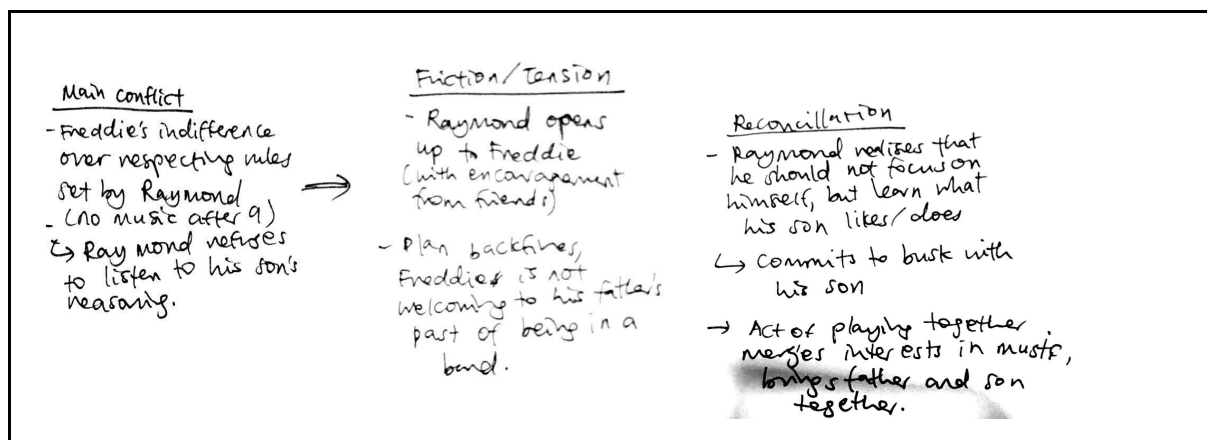 Main conflict
- Freddie's indifference
over respecting rules
set by Raymond
(no music after 9)
-
↳ Raymond refuses
to listen to his son's
reasoning.
Friction/Tension
- Raymond opens
up to Freddie
(with encouragement
from friends)
- Plan backfires,
Freddies is not
welcoming to his father's
past of being in a
band.
Reconcillation
- Raymond realises that
he should not focus on
himself, but learn what
his son likes/does
↳ Commits to busk with
his son
→ Act of playing together
merges interests in music,
brings father and son
together.